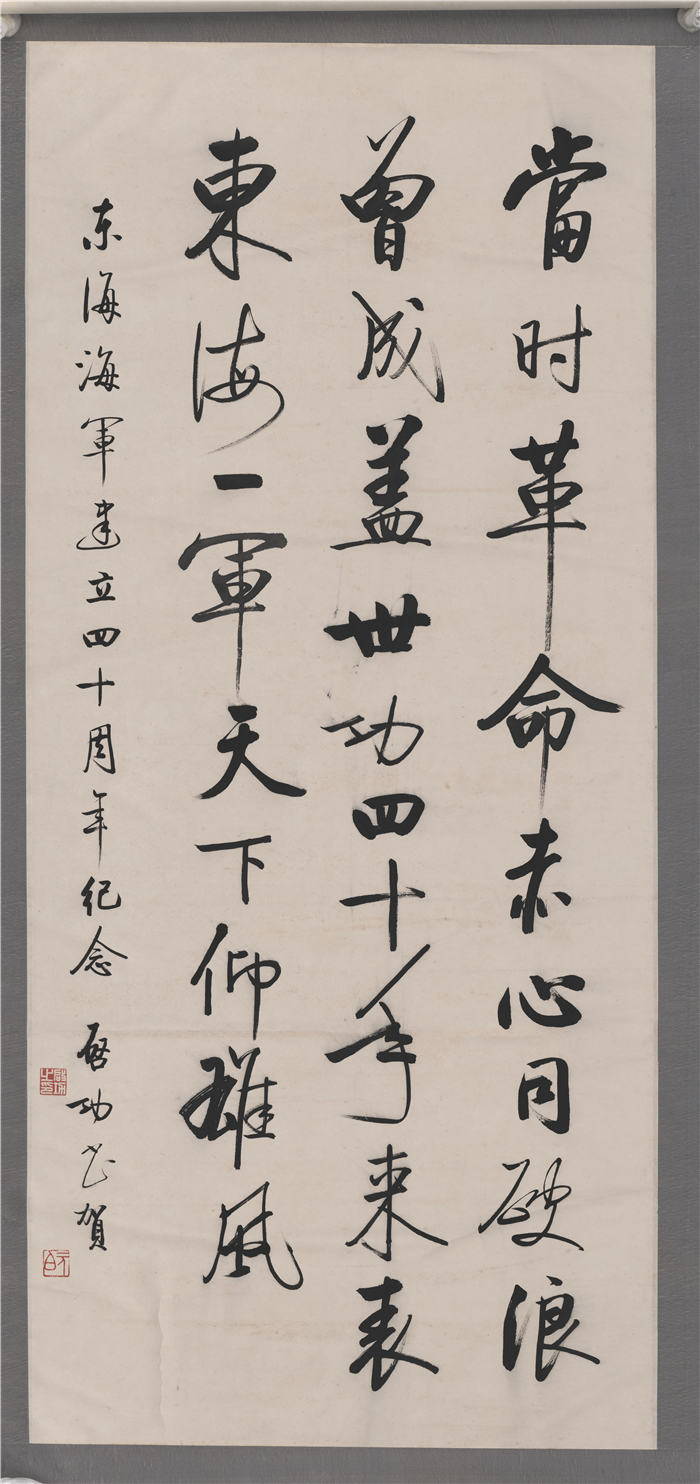 當时革命赤心同破浪
曾成盖世功四十年来表
東海一軍天下仰雄風
东海海軍建立四十周年纪念 啓功书贺
啓功之印
元白